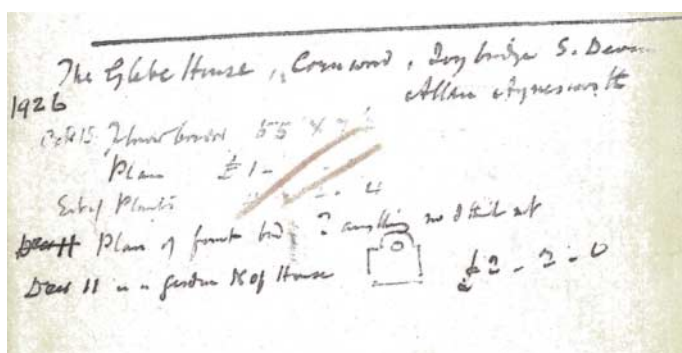 The Glebe House, Cornwood, Ivybridge S. Devon
Allan Aynesworth
1926
Oct 15. Flower border 55 x 7
Plan £1 -
List of Plants 4
Dec 11 Plan of front bed ? anything no I think not
Dec 11 in a garden N of House £2 - 2 - 0